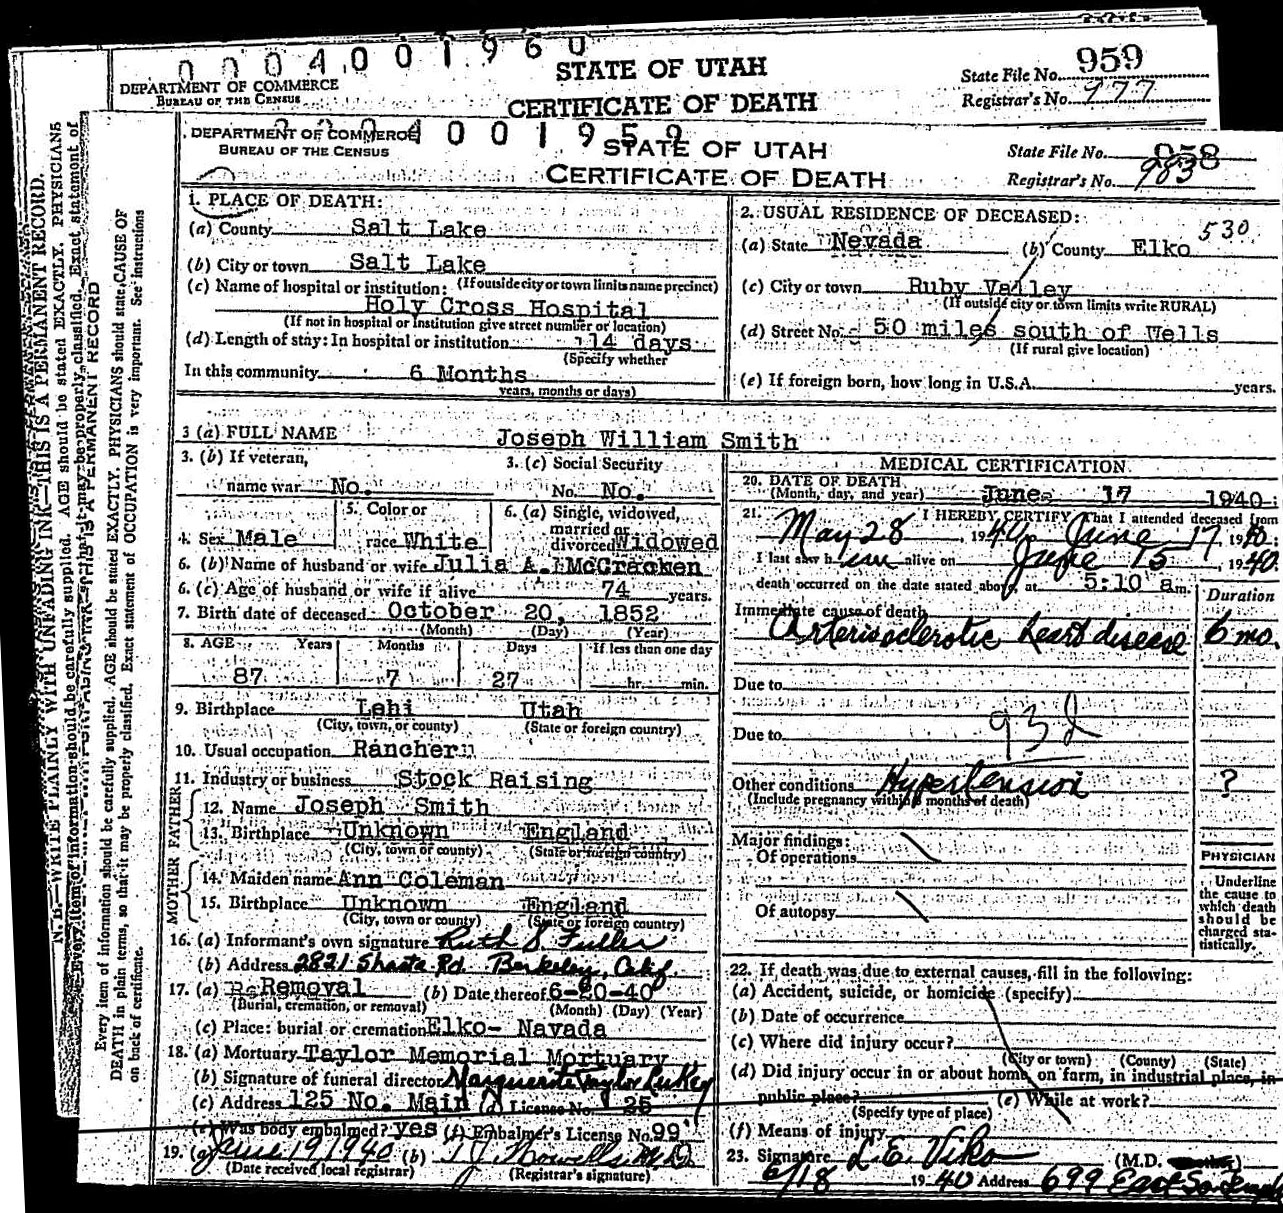 0004001960
STATE OF UTAH
CERTIFICATE OF DEATH
DEPARTMENT OF COMMERCE
BUREAU OF THE CENSUS
State File No. 959
Registrar's No. 977
DEPARTMENT OF COMMERCE
BUREAU OF THE CENSUS
4001959
STATE OF UTAH
CERTIFICATE OF DEATH
State File No. 958
Registrar's No. 983
N. B.—WRITE PLAINLY WITH UNFADING INK—THIS IS A PERMANENT RECORD.
Every item of information should be carefully supplied. AGE should be stated EXACTLY. PHYSICIANS
Every item of information should be carefully supplied. AGE should be stated EXACTLY. PHYSICIANS should state CAUSE OF
DEATH in plain terms, so that it may be properly classified. Exact statement of OCCUPATION is very important. See instructions
on back of certificate.
1. PLACE OF DEATH:
(a) County Salt Lake
(b) City or town Salt Lake
(c) Name of hospital or institution: (If outside city or town limits name precinct)
Holy Cross Hospital
(If not in hospital or institution give street number or location)
(d) Length of stay: In hospital or institution 14 days
(Specify whether
In this community 6 Months
years, months or days)
2. USUAL RESIDENCE OF DECEASED:
530
(a) State Nevada (b) County Elko
(c) City or town Ruby Valley
(If outside city or town limits write RURAL)
(d) Street No. 50 miles south of Wells
(If rural give location)
(e) If foreign born, how long in U.S.A. years.
3 (a) FULL NAME Joseph William Smith
3. (b) If veteran,
name war No.
3. (c) Social Security
No. No.
4. Sex Male
5. Color or
race White
6. (a) Single, widowed,
married or
divorced Widowed
6. (b) Name of husband or wife Julia A. McCracken
6. (c) Age of husband or wife if alive 74 years.
7. Birth date of deceased October 20, 1852
(Month) (Day) (Year)
8. AGE Years Months Days If less than one day
87 7 27 hr. min.
9. Birthplace Lehi Utah
(City, town, or county) (State or foreign country)
10. Usual occupation Rancher
11. Industry or business Stock Raising
FATHER
12. Name Joseph Smith
13. Birthplace Unknown England
(City, town or county) (State or foreign country)
MOTHER
14. Maiden name Ann Coleman
15. Birthplace Unknown England
(City, town or county) (State or foreign country)
16. (a) Informant's own signature Ruth S Fuller
(b) Address 2821 Shasta Rd. Berkeley, Calif.
17. (a) Removal (b) Date thereof 6-20-40
(Burial, cremation, or removal) (Month) (Day) (Year)
(c) Place: burial or cremation Elko- Navada
18. (a) Mortuary Taylor Memorial Mortuary
(b) Signature of funeral director Marguerite Taylor
(c) Address 125 No. Main License No. 25
(e) Was body embalmed? yes (f) Embalmer's License No. 99
19. (a) June 19 1940 (b)
(Date received local registrar) (Registrar's signature)
MEDICAL CERTIFICATION
20. DATE OF DEATH
(Month, day, and year) June 17 1940
21. I HEREBY CERTIFY That I attended deceased from
May 28, 1940, June 17, 1940:
I last saw him alive on June 15, 1940.
death occurred on the date stated above, at 5:10 a m.
Duration
Immediate cause of death
Arteriosclerotic heart disease 6 mo.
Due to
93d
Due to
Other conditions Hypertension ?
(Include pregnancy within 3 months of death)
Major findings:
Of operations
Of autopsy
PHYSICIAN
Underline
the cause to
which death
should be
charged sta-
tistically.
22. If death was due to external causes, fill in the following:
(a) Accident, suicide, or homicide (specify)
(b) Date of occurrence
(c) Where did injury occur?
(City or town) (County) (State)
(d) Did injury occur in or about home, on farm, in industrial place, in
public place? (e) While at work?
(Specify type of place)
(f) Means of injury
23. Signature L. E. Viko (M.D.
6/18 1940 Address 699 East So. Temple